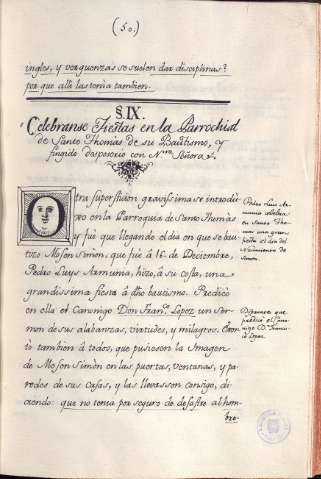 (50.)
ingles, y verguenzas se suelen dar disciplinas?
por que alli las tenia tambien.
§. IX.
Celebranse Fiestas en la Parrochial
de Santo Thomàs de su Bautismo, y
fingido desposorio con Nra. Señora.
Otra supersticion gravissima se introdu-
xo en la Parroquia de Santo Thomàs
y fuè que llegando el dia en que se bau-
tizo Mosen Simòn, que fuè à 16. de Deciembre,
Pedro Luys Armunia, hizo, à su costa, una
grandissima fiesta à dho bautismo. Predicò
en ella el Canonigo Don Fran.co Lopez un ser-
mon de sus alabanzas, virtudes, y milagros. Exor-
to tambien à todos, que pusiesen la Imagen
de Mosen Simòn en las puertas, ventanas, y pa-
redes de sus casas, y las llevassen consigo, di-
ciendo: que no tenia por seguro de desastre al hom-
bre
Pedro Luis Ar-
munia celebra
en Santo Tho-
màs una gran
fiesta el dia del
Nacimiento de
Simon.
que
predicò el Cano-
nigo D. Francis-
co Lopez.